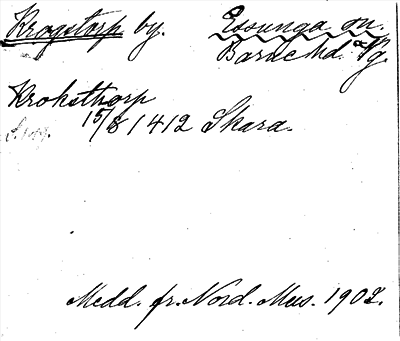 Krogstorp by. Essunga sn.
Barne hd. Vg.
Krokstorp
15/8 1412 Skara.
Medd. fr. Nord. Mus. 1902.